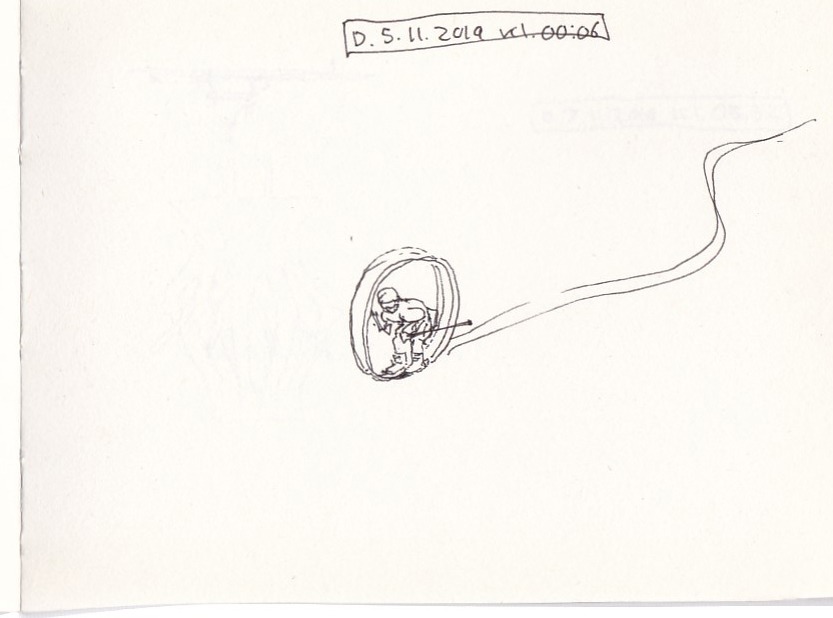 D. 5.11.2019 kl. 00:06